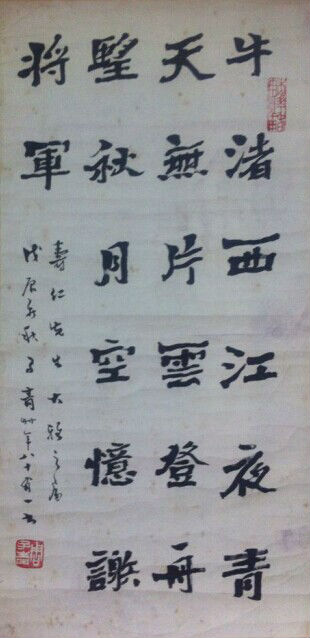 牛渚西江夜青
天無片雲登舟
朢秋月空憶謝
將軍
壽仁先生大雅之屬
戊辰秋青年八十有一書